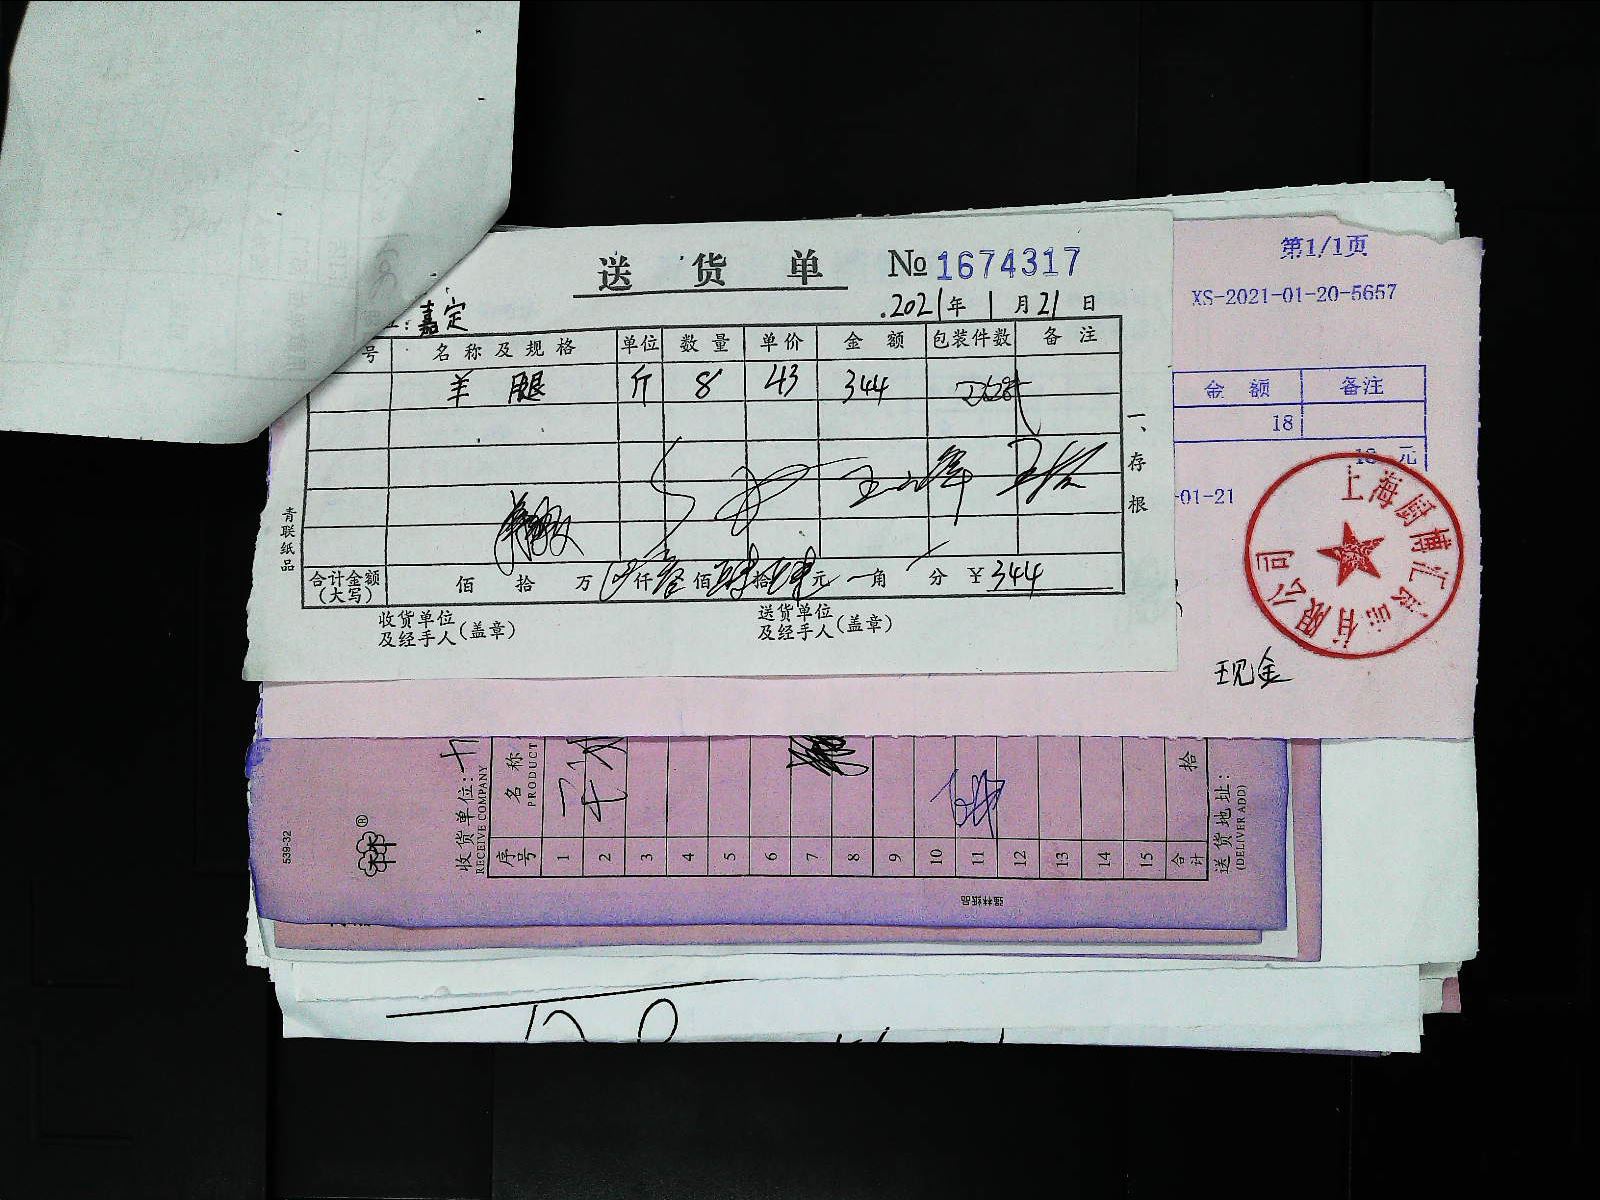 送 货 单 № 1674317
嘉定
2021年 1月21日
号 名称及规格 单位 数量 单价 金额 包装件数 备注
羊腿 斤 8 43 344
一、存根
青联纸品
合计金额(大写) 佰 拾 万 仟 佰 拾 元 角 分 ¥344
收货单位及经手人(盖章) 送货单位及经手人(盖章)
第1/1页
XS-2021-01-20-5657
金 额 备注
18
18 元
-01-21
上海厨博汇 有限公司
现金
539-32
收货单位:
RECEIVE COMPANY
序号 名称
PRODUCT
1
2
3
4
5
6
7
8
9
10
11
12
13
14
15
合计 拾
送货地址:
(DELIVER ADD)
强林纸品